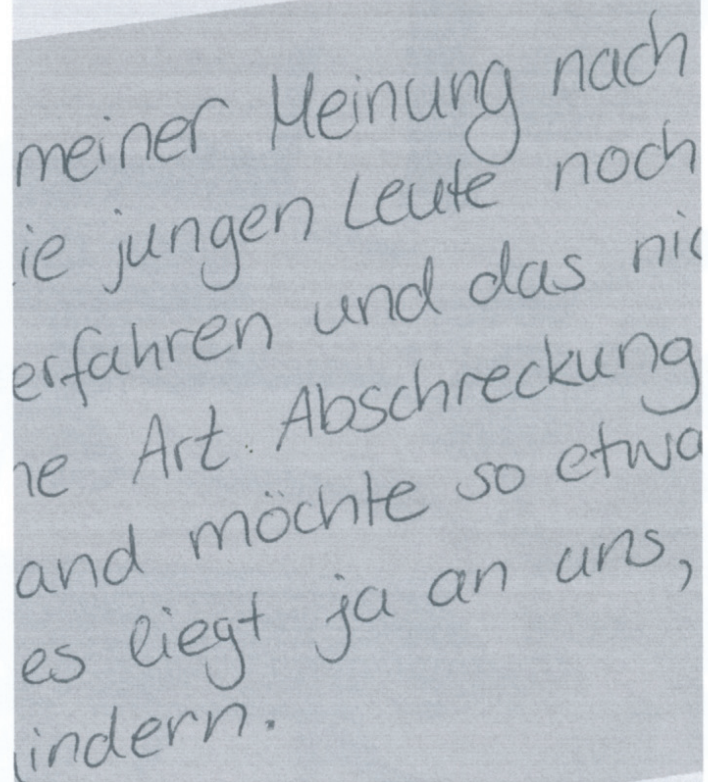 meiner Meinung nach
ie jungen Leute noch
erfahren und das nic
ne Art Abschreckung
and möchte so etwa
es liegt ja an uns,
indern.